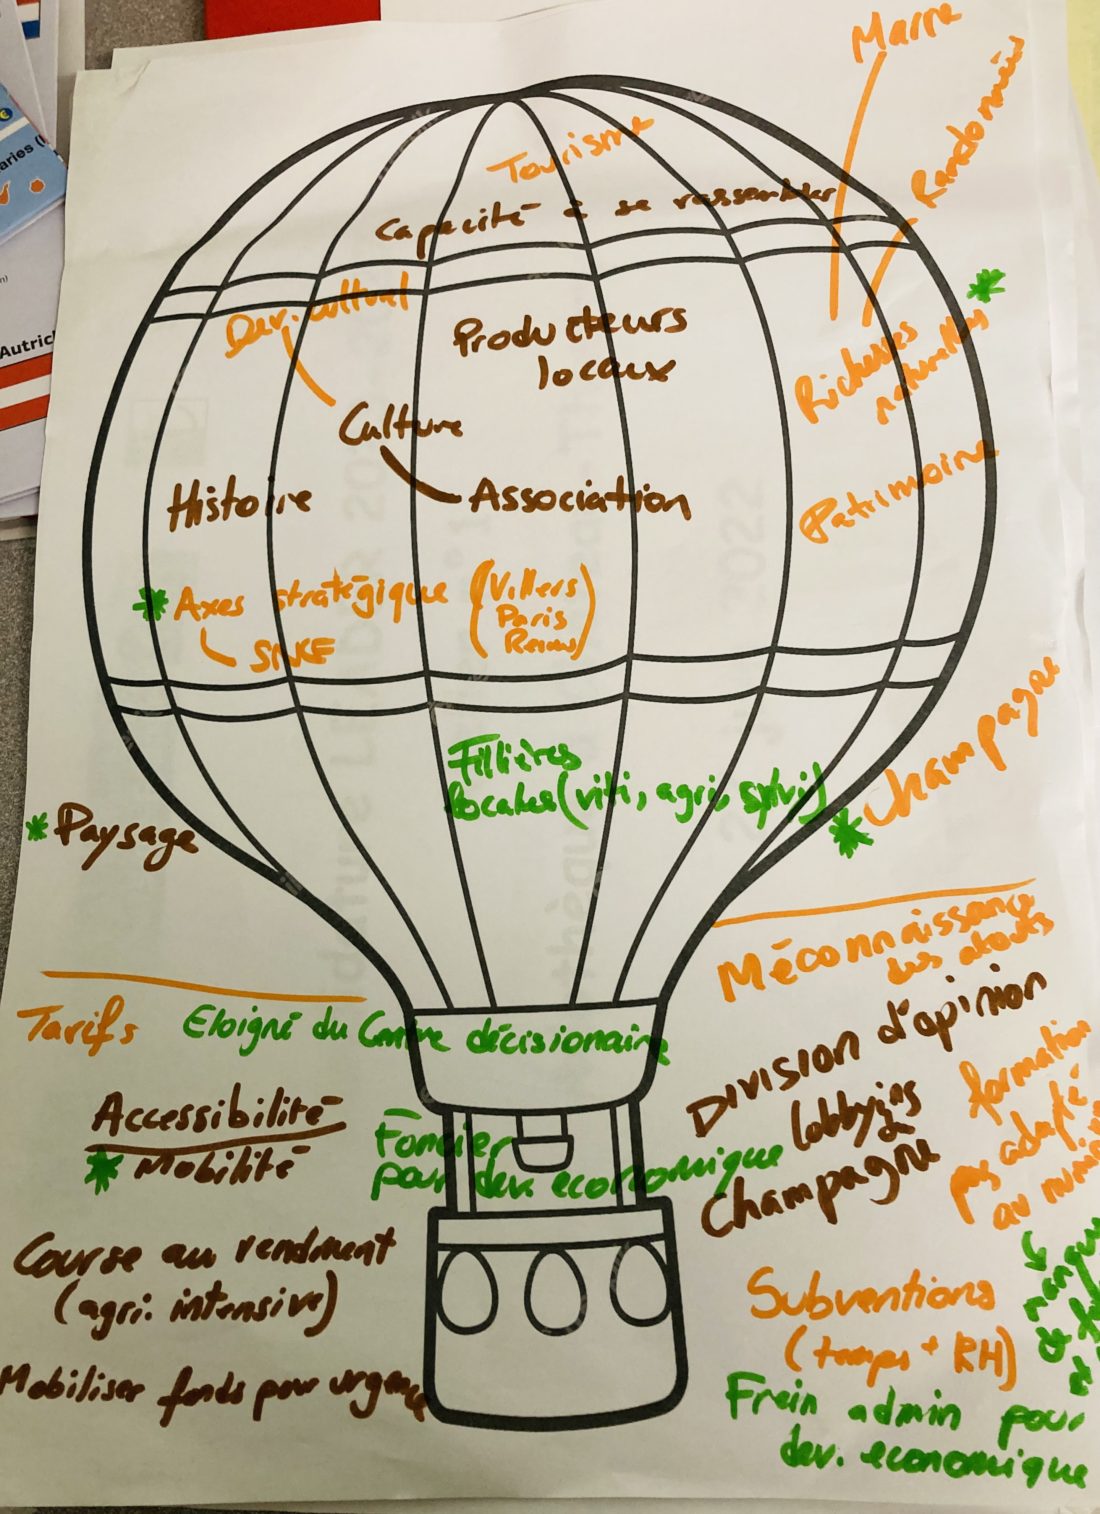 Marne
Randonnées
Tourisme
Capacité à se rassembler
Dev. culturel
Producteurs
locaux
Richesses
naturelles
Culture
Histoire
Association
Patrimoine
Axes stratégique (Villers
Paris
Reims)
Champagne
Fillières
locales (viti, agri, sylvi)
Paysage
Méconnaissance
des atouts
Tarifs
Eloigné du Centre décisionaire
Division d'opinion
lobbying
Champagne
formation
pas adapté
au
Accessibilité
Mobilité
Foncier
pour dev. economique
Course au rendment
(agri. intensive)
Subventions
(temps + RH)
Mobiliser fonds pour urgence
Frein admin pour
dev. economique
aries (
Autric